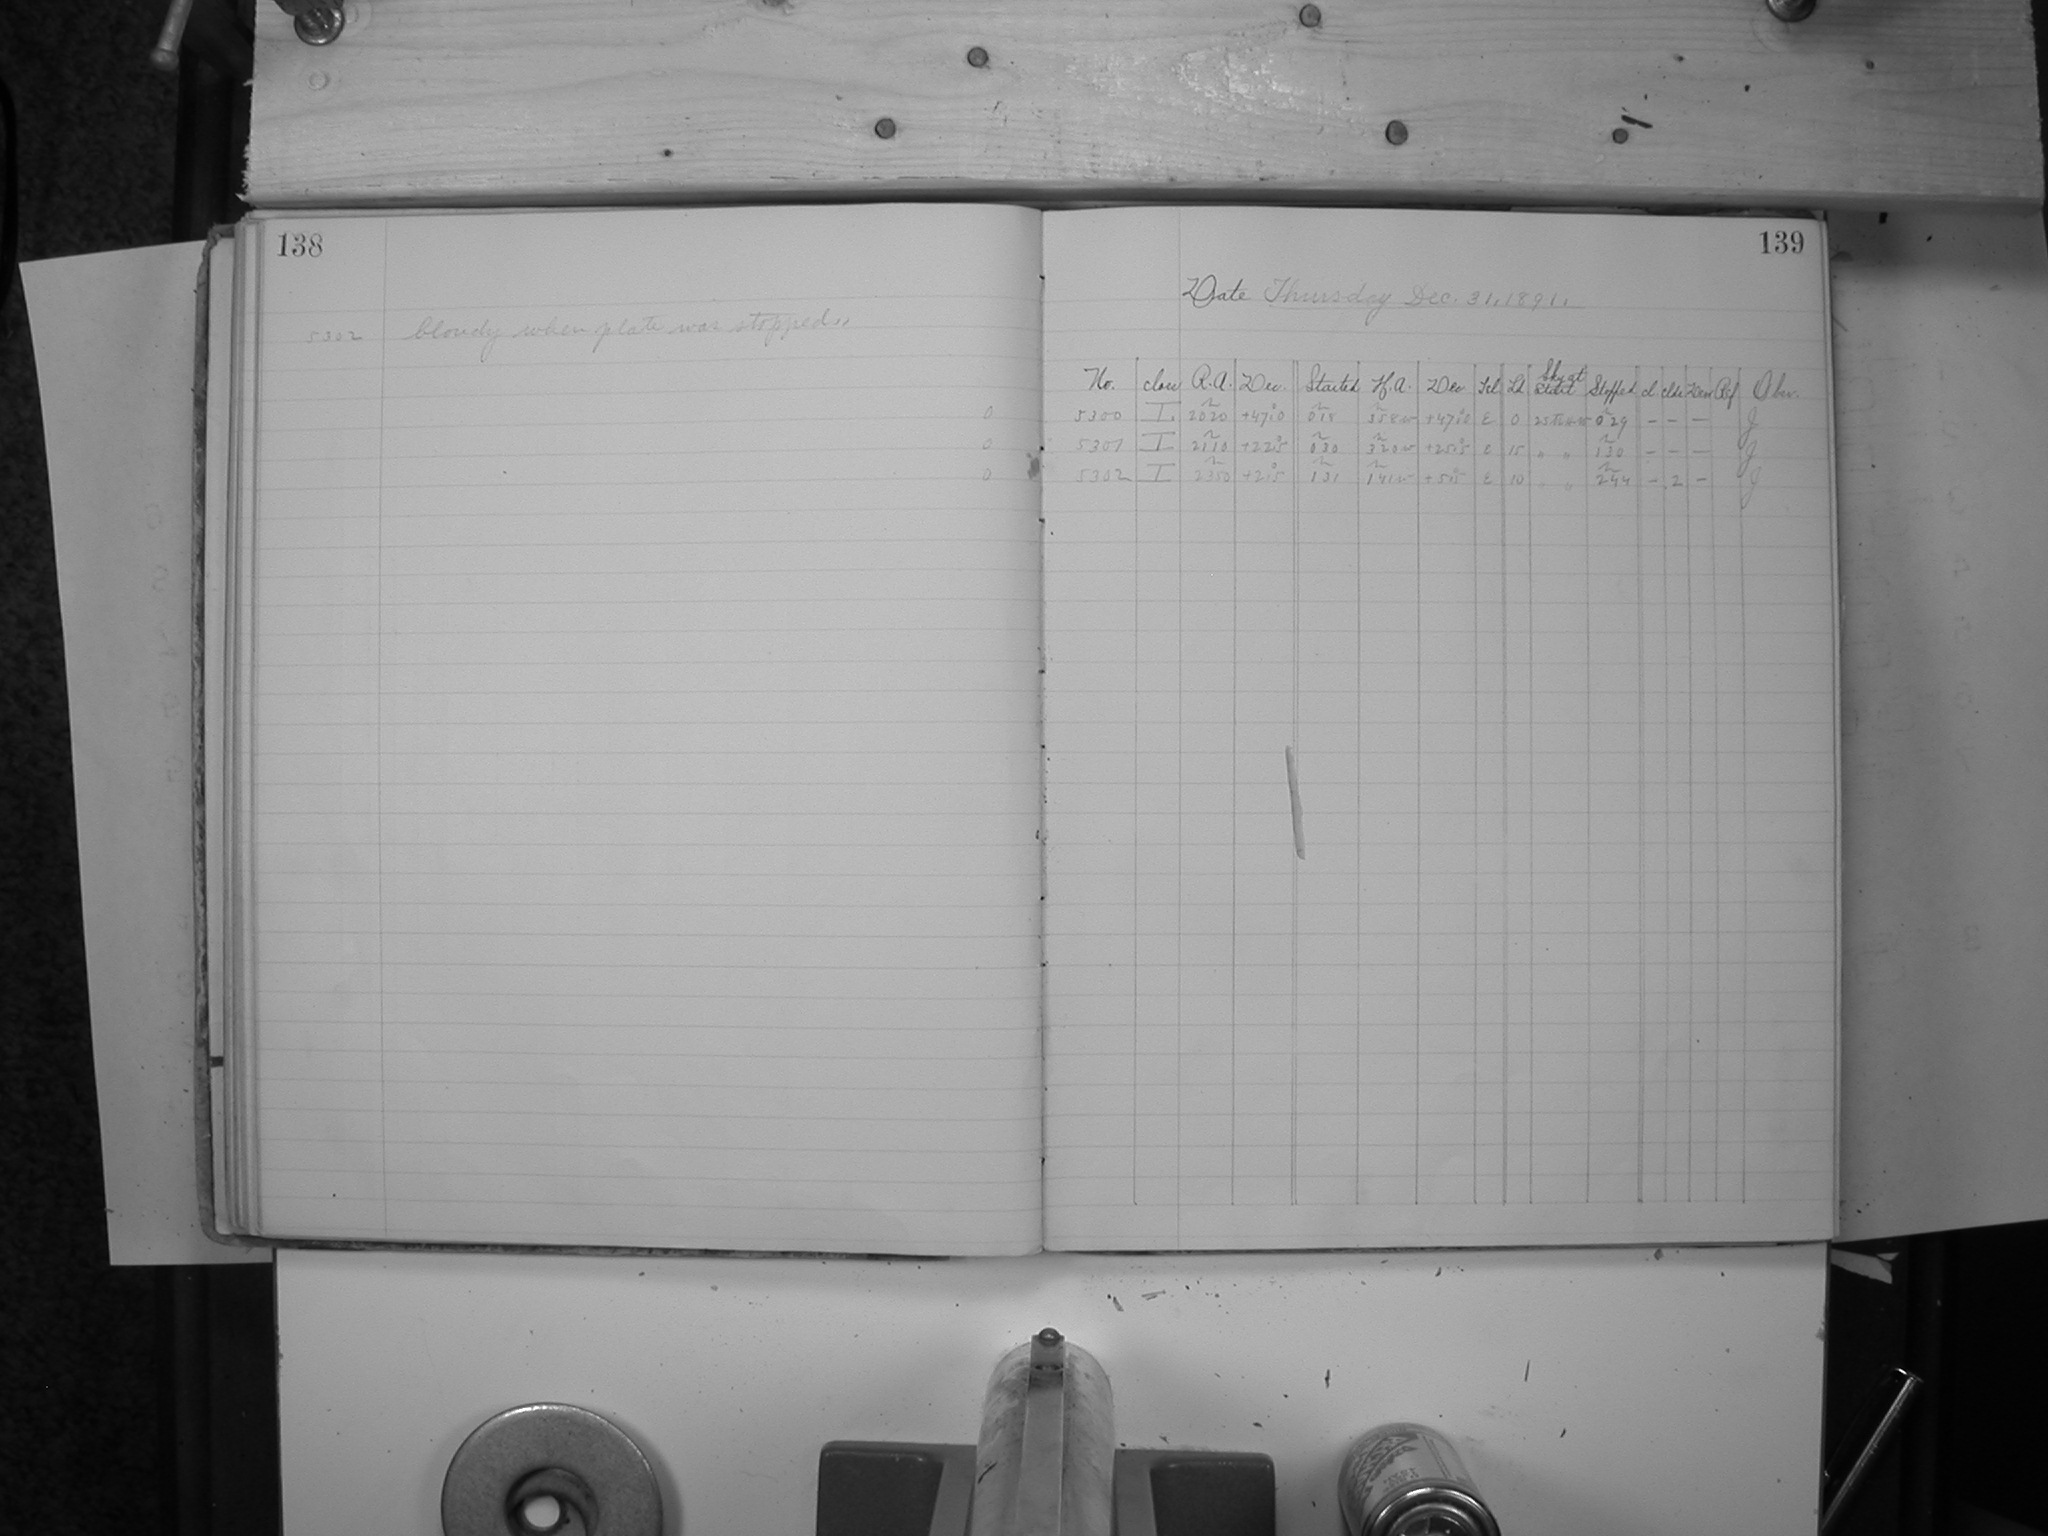 138
5302 Cloudy when plate was stopped.
139
Date Thursday Dec. 31, 1891.
No. class R.A. Dec. Started H.A. Dec. Tel. Ld Sky at Start Stopped cl. clds Dew Ref Obser.
0 5300 I. 20 20 +47.0 0 18 3 58 w +47.0 E 0 0 29 - - - J
0 5301 I 21 10 +22.5 0 30 3 20 w +25.5 E 15 " " 1 30 - - - J
0 5302 I 23 50 +2.5 1 31 1 41 w +5.5 E 10 " " 2 44 - 2 - J